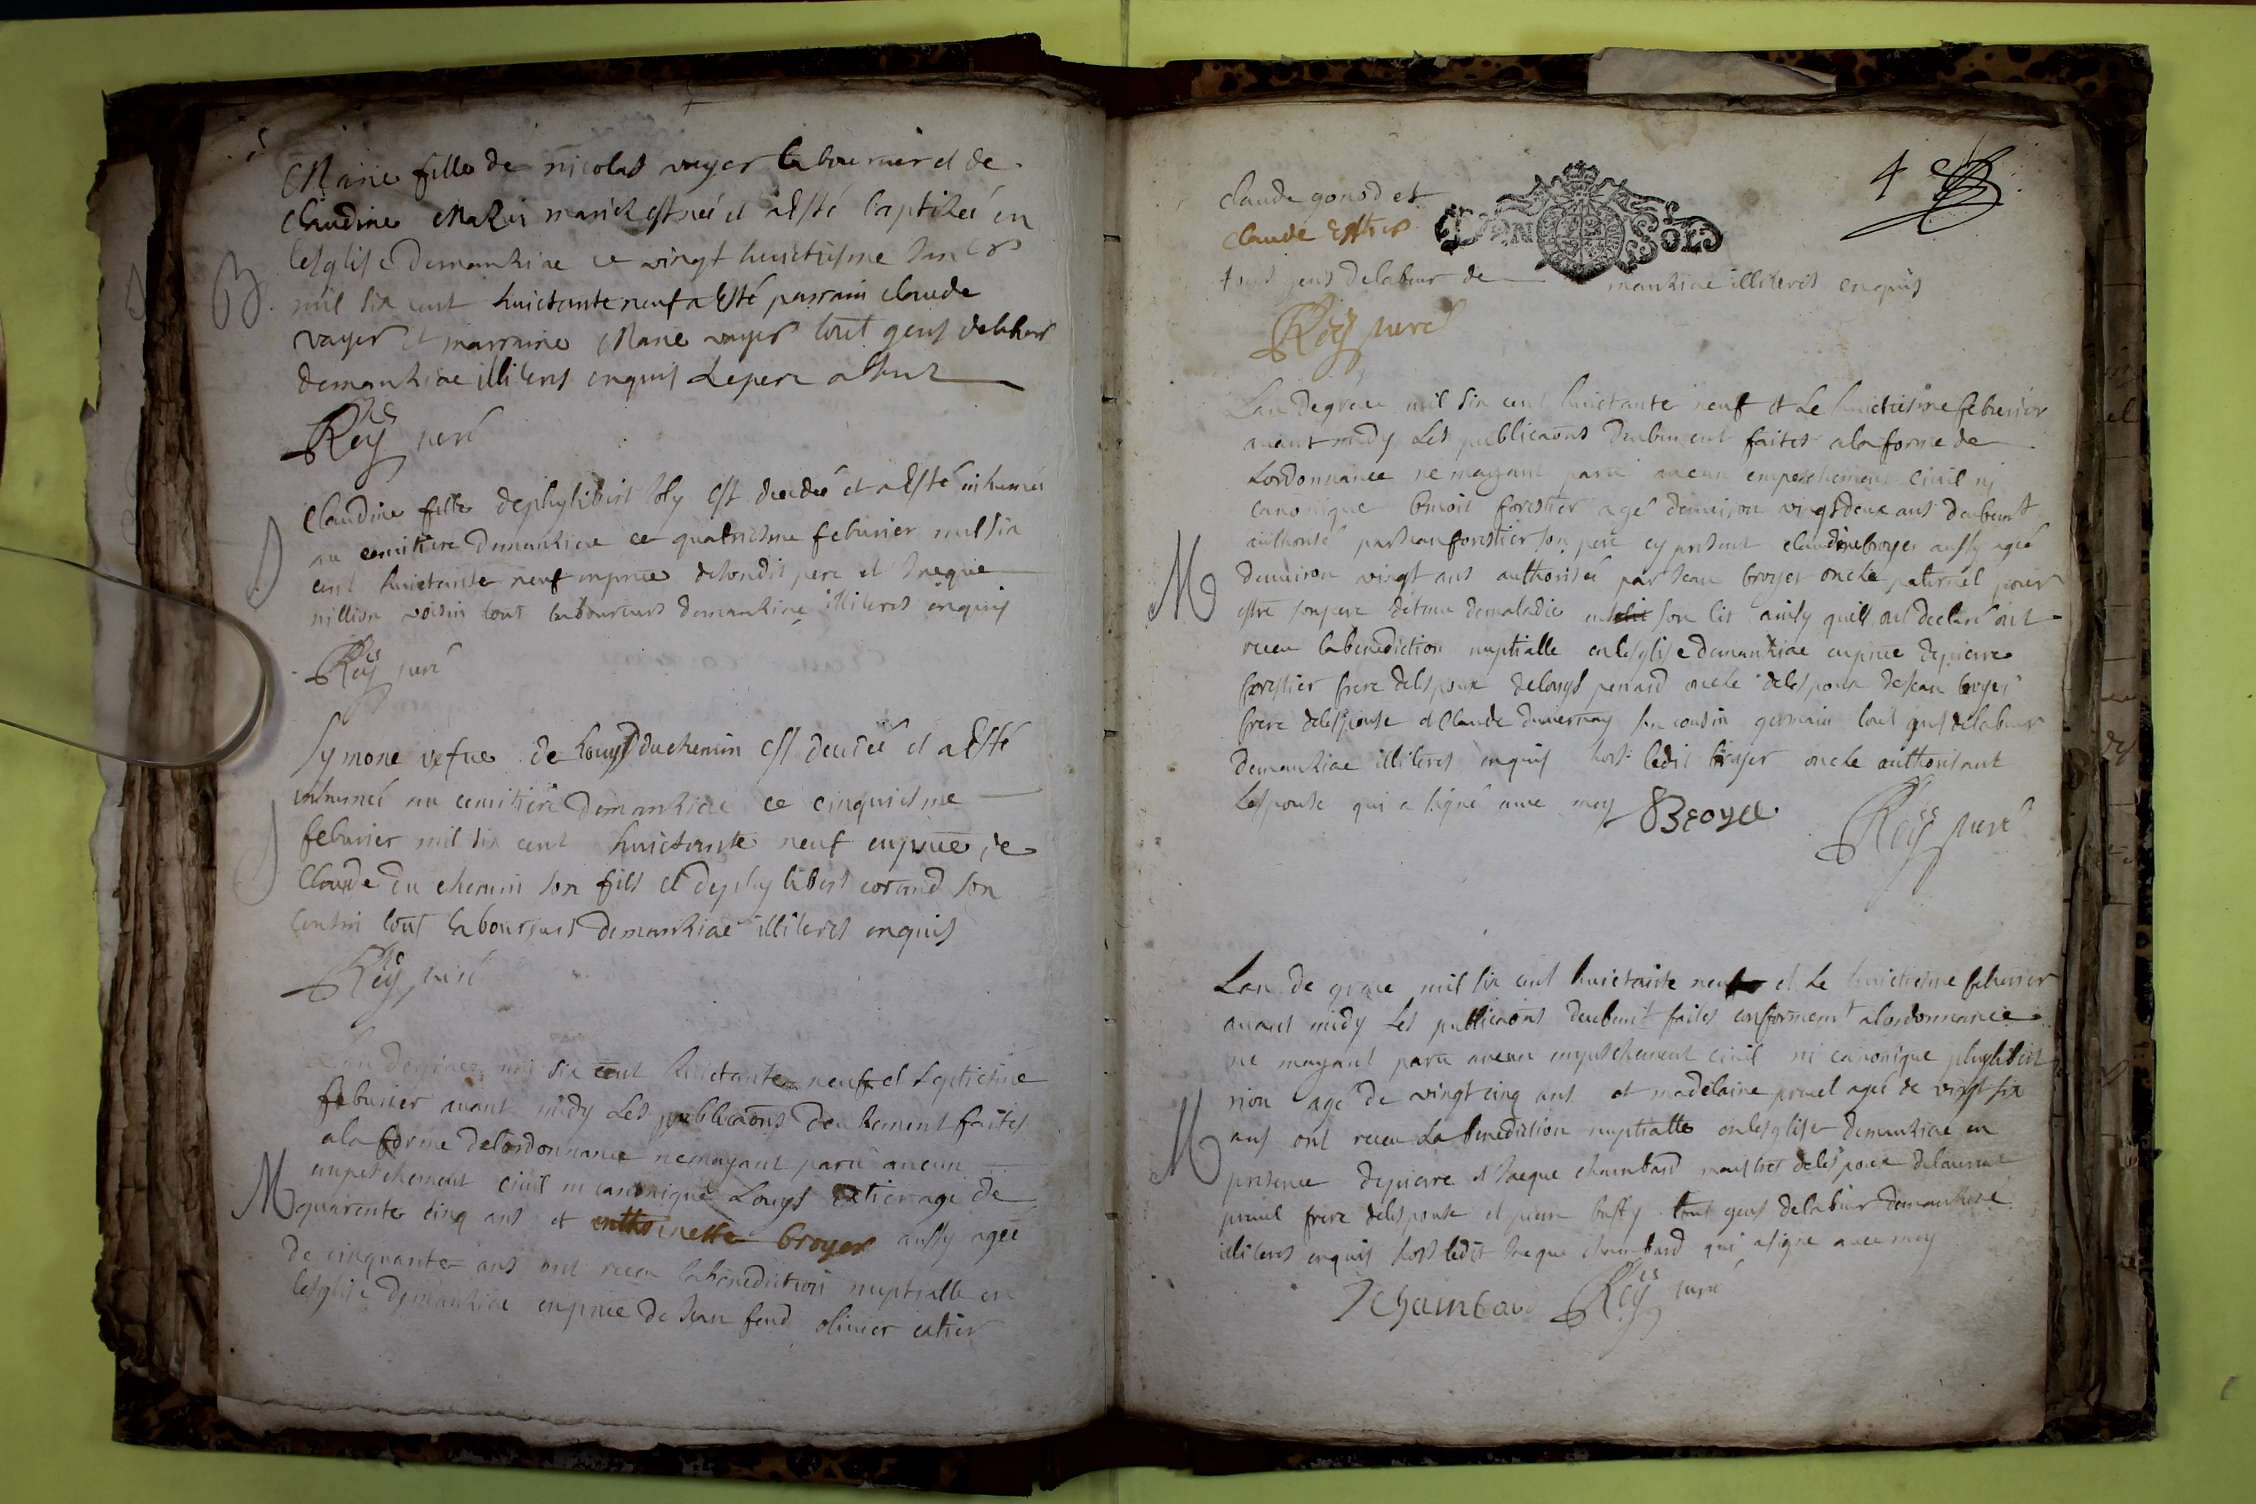 Marie fille de nicolas voyer laboureur et de
claudine mariés est née et a esté baptizée en
lesglise demanziae ce vingt huictiesme
mil six cent huictante neuf a esté parrain claude
voyer et marraine Marie voyer tout gens delabeur
demanziae illiteres enquis le pere absent
Rey curé
B
Claudine fille dephylibert est decedée et a esté inhumée
au cemitiere demanziae ce quatriesme febvrier mil six
cent huictante neuf enpnce desondit pere et Jaeque
nillion voisin tout laboureurs demanziae illiteres enquis
Rey curé
Symone vefue de Louys duchemin est decedeé et a esté
inhumeé au cemitiere demanziae ce cinquiesme
febvrier mil six cent huictante neuf enpnce de
Claude du chemin son fils et dephylibert corand son
cousin tout laboureurs demanziae illiteres enquis
Rey curé
Lan degrace mil six cent huictante neuf et septiesme
febvrier avant midy Les publicaons deubement faites
a la forme delordonnance nemayant paru aucun
M
empeschement civil ni canonique Louys agé de
quarente cinq ans et anthoinette broyer aussy agée
de cinquante ans ont receu la benediction nuptialle en
lesglise demanziae enpnce de Jean feud olivier
4
claude gonod et
claude
GEN SOLS
tous gens delabeur de manziae illiteres enquis
Rey curé
Lan degrace mil six cent huictante neuf et Le huictiesme febvrier
avant midy Les publicaons deubement faites a la forme de
Lordonnance ne mayant paru aucun empeschement civil ni
canonique benoit forestier agé denviron vingt deux ans deubent
authorisé par Jean forestier son pere cy present claudine broyer aussy agée
M
denviron vingt ans authorisée par Jean broyer oncle paternel pour
estre son pere detenu demaladie en son lit ainsy quils ont declaré ont
receu la benediction nuptialle en lesglise demanziae enpnce depierre
forestier frere delespoux delouys perrard oncle delespoux deJean broyer
frere delespouse et Claude duvernay son cousin germain tout gens delabeur
demanziae illiteres enquis hors ledit broyer oncle authorisant
Lespouse qui a signé avec moy Broyer Rey curé
Lan de grace mil six cent huictante neuf et Le huictiesme febvrier
avant midy Les publicaons deubent faites conforment alordonnance
ne mayant paru aucun empeschement civil ni canonique phylibert
nion agé de vingt cinq ans et madelaine pruel agée de vingt six
M
ans ont receu La benediction nuptialle en lesglise demanziae en
presence depierre et Jaeque chambard delespoux delaurent
pruel frere delespouse et pierre tout gens delabeur demanziae
illiteres enquis hors ledit Jaeque chambard qui a signé avec moy
J Chambar Rey curé